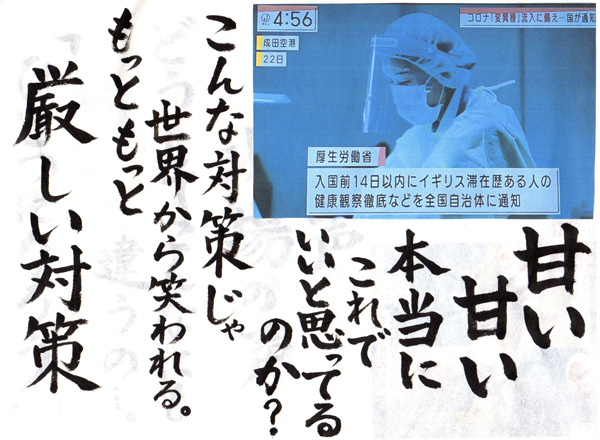 4:56
コロナ「変異種」流入に備え…国が通知
成田空港
22日
厚生労働省
入国前14日以内にイギリス滞在歴ある人の
健康観察徹底などを全国自治体に通知
甘い
甘い
本当に
これで
いいと思ってる
のか?
こんな対策じゃ
世界から笑われる。
もっともっと
厳しい対策